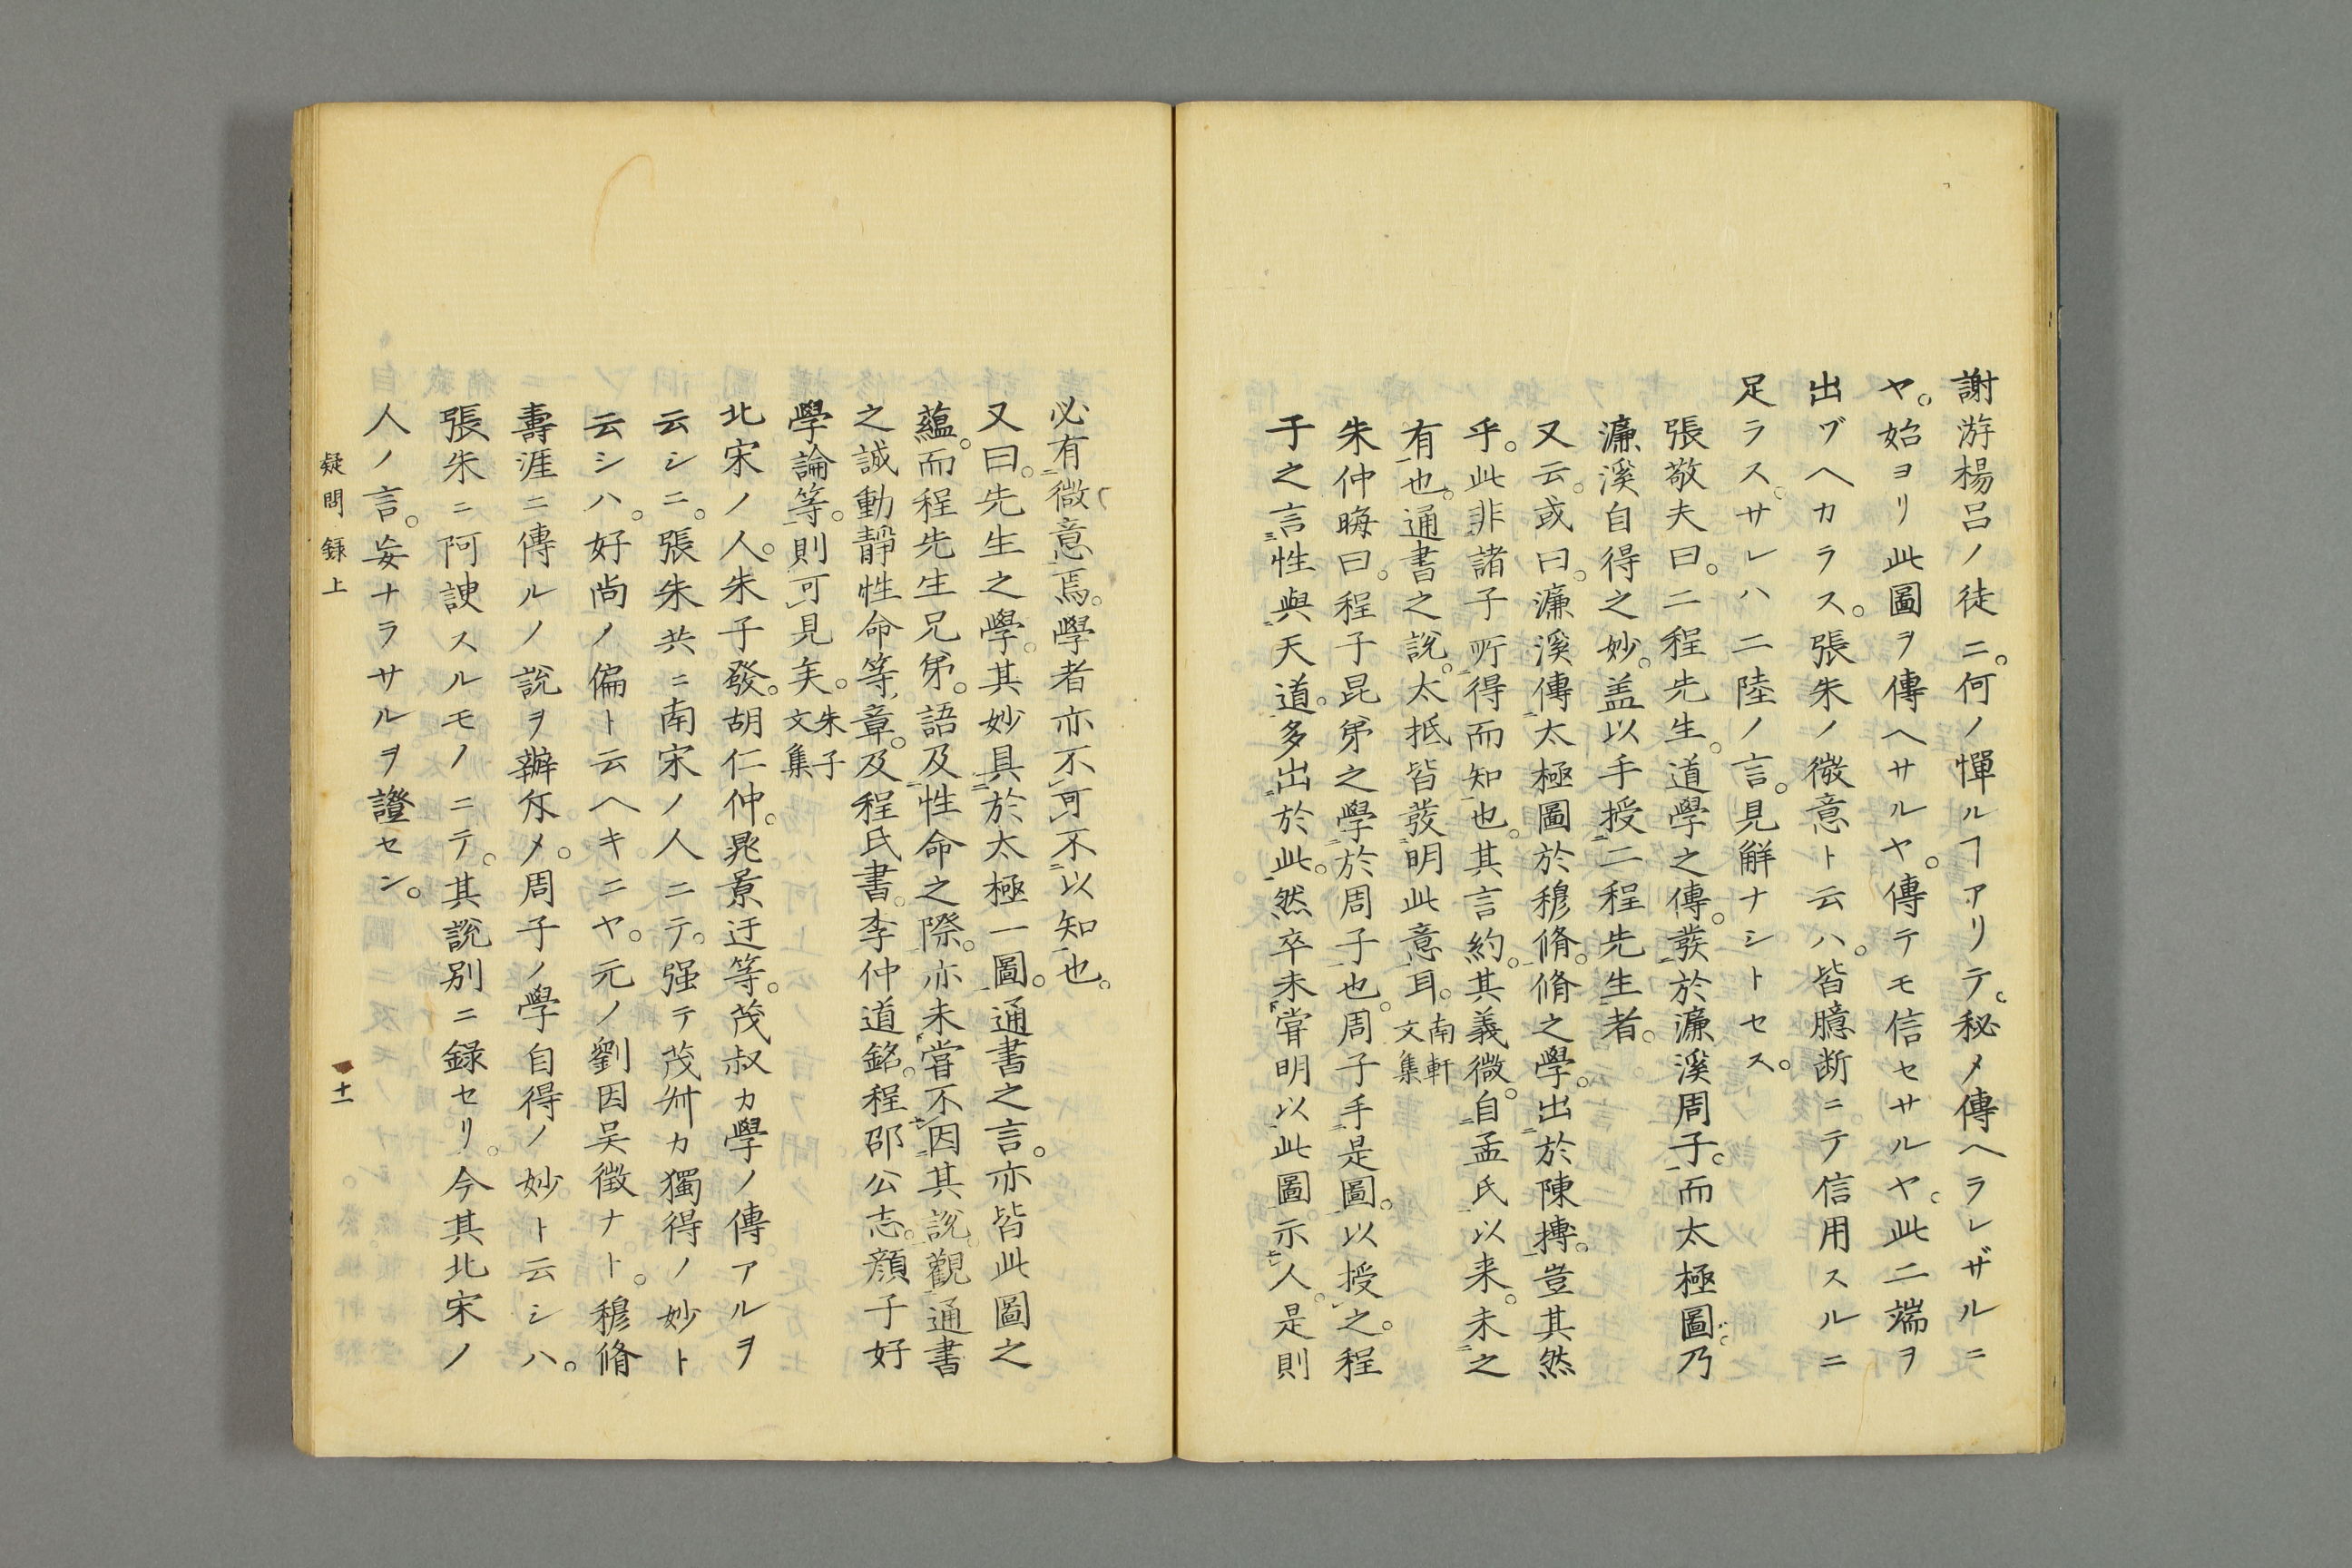 謝游楊呂ノ徒ニ。何ノ憚ルヿアリテ。秘メ傳ヘラレザルニ
ヤ。始ヨリ此圖ヲ傳ヘサルヤ。傳テモ信セサルヤ。此二端ヲ
出ヅヘカラス。張朱ノ微意ト云ハ。皆臆断ニテ信用スルニ
足ラス。サレハ二陸ノ言。見解ナシトセス。
張敬夫曰。二程先生。道學之傳。發於濂溪周子。而太極圖。乃
濂溪自得之妙。盖以手授二程先生者。
又云。或曰。濂溪傳太極圖於穆脩。脩之學。出於陳摶。豈其然
乎。此非諸子所得而知也。其言約。其義微。自孟氏以来。未之
有也。通書之說。太抵皆發明此意耳。南軒文集
朱仲晦曰。程子昆弟之學於周子也。周子手是圖。以授之。程
子之言性與天道。多出於此。然卒未甞明以此圖示人。是則
必有微意焉。學者亦不可不以知也。
又曰。先生之學。其妙具於太極一圖。通書之言。亦皆此圖之
蘊。而程先生兄弟。語及性命之際。亦未甞不因其說。觀通書
之誠動靜性命等章。及程氏書。李仲道銘。程邵公志。顔子好
學論等。則可見矣。朱子文集
北宋ノ人。朱子發。胡仁仲。晁景迂等。茂叔カ學ノ傳アルヲ
云シニ。張朱共ニ南宋ノ人ニテ。强テ茂叔カ獨得ノ妙ト
云シハ。好尚ノ偏ト云ヘキニヤ。元ノ劉因吴徵ナト。穆脩
壽涯ニ傳ルノ說ヲ辦斥メ。周子ノ學自得ノ妙ト云シハ。
張朱ニ阿諛スルモノニテ。其說別ニ録セリ。今其北宋ノ
人ノ言。妄ナラサルヲ證セン。
疑問録上
十一